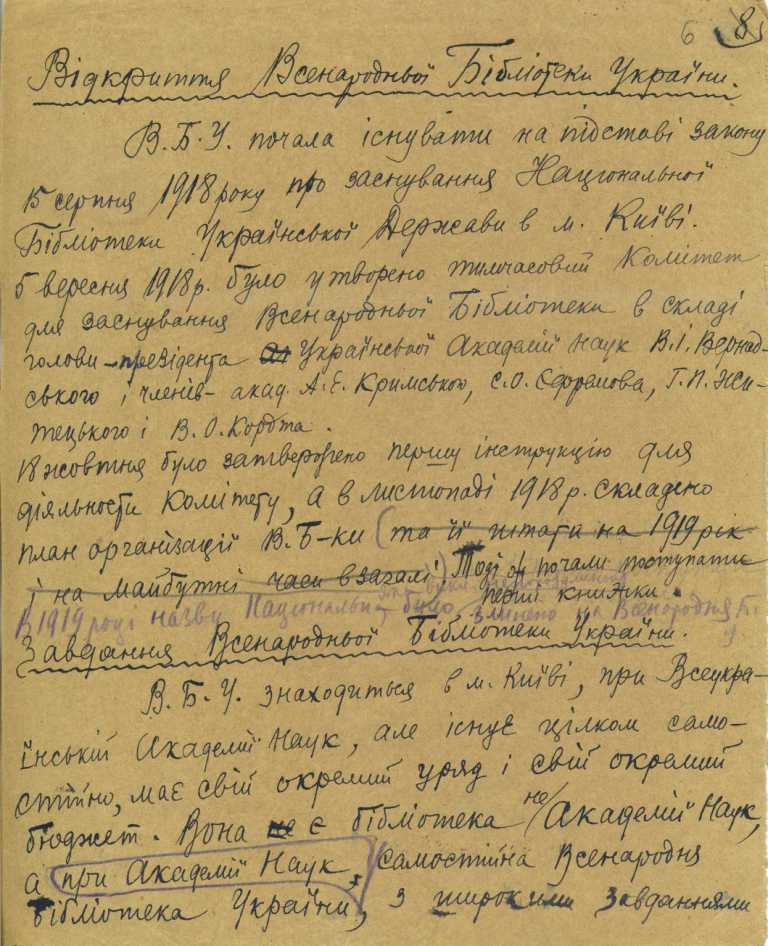 6 8
Відкриття Всенародньої Бібліотеки України.
В.Б.У. почала існувати на підставі закону
15 серпня 1918 року про заснування Національної
Бібліотеки Української Держави в м. Київі.
5 вересня 1918 р. було утворено тимчасовий Комітет
для заснування Всенародньої Бібліотеки в складі
голови-президента Української Академії Наук В.І. Вернад-
ського і членів- акад. А.Е. Кримського, С.О. Єфремова, Г.П. Жи-
тецького і В.О. Кордта.
18 жовтня було затверджено першу інструкцію для
діяльности Комітету, а в листопаді 1918 р. складено
план організації В.Б-ки (та її штати на 1919 рік
і на майбутні часи взагалі). Тоді ж почали поступати
перші книжки.
В 1919 році назву Національн. було змінено на Всенародня Б.
Завдання Всенародньої Бібліотеки України.
В.Б.У. знаходиться в м. Київі, при Всеукра-
їнській Академії Наук, але існує цілком само-
стійно, має свій окремий уряд і свій окремий
бюджет. Вона не є бібліотека не Академії Наук,
а при Академії Наук, самостійна Всенародня
Бібліотека України, з широкими завданнями